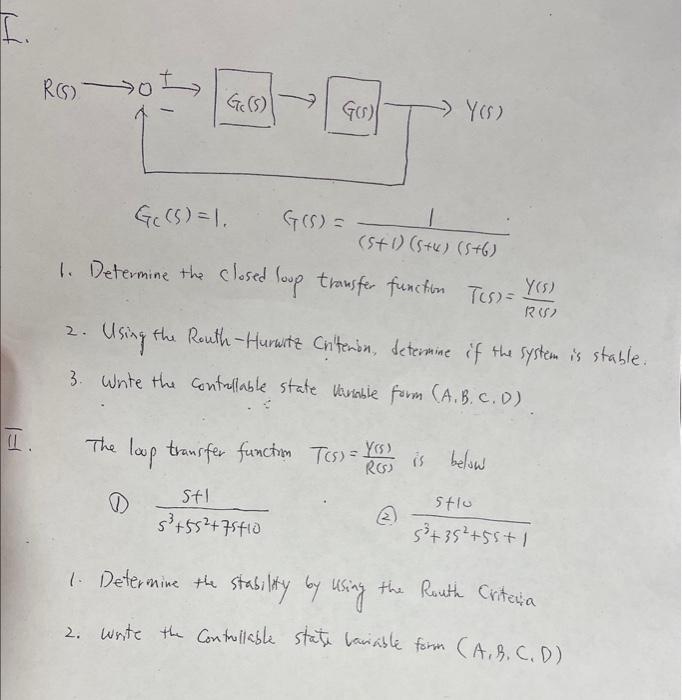 I.
R(S) → O + → Gc(S) → G(S) → Y(S)
−
Gc(S) = 1. G(S) = 1 / (S+1)(S+4)(S+6)
1. Determine the closed loop transfer function T(S) = Y(S) / R(S)
2. Using the Routh-Hurwitz Criterion, determine if the system is stable.
3. Write the Controllable state Variable form (A, B, C, D)
II. The loop transfer function T(S) = Y(S) / R(S) is below
① S+1 / S³+5S²+7S+10 ② S+10 / S³+3S²+5S+1
1. Determine the stability by using the Routh Criteria
2. Write the Controllable state variable form (A, B, C, D)